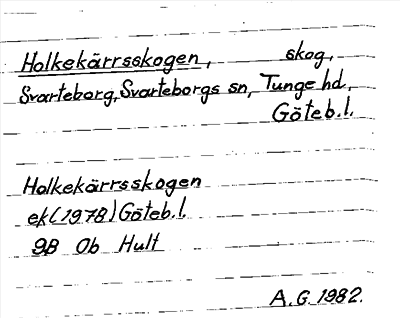 Holkekärrsskogen, skog,
Svarteborg, Svarteborgs sn, Tunge hd,
Göteb.l.
Holkekärrsskogen
ek(1978) Göteb.l.
9B 0b Hult
A.G. 1982.